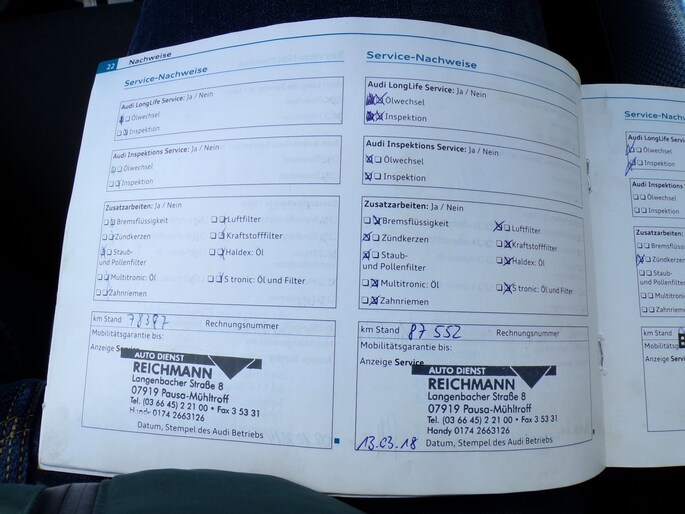 22 Nachweise
Service-Nachweise
Audi LongLife Service: Ja / Nein
Ölwechsel
Inspektion
Audi Inspektions Service: Ja / Nein
Ölwechsel
Inspektion
Zusatzarbeiten: Ja / Nein
Bremsflüssigkeit Luftfilter
Zündkerzen Kraftstofffilter
Staub- Haldex: Öl
und Pollenfilter
Multitronic: Öl S tronic: Öl und Filter
Zahnriemen
km Stand 78397 Rechnungsnummer
Mobilitätsgarantie bis:
Anzeige Service
AUTO DIENST
REICHMANN
Langenbacher Straße 8
07919 Pausa-Mühltroff
Tel. (03 66 45) 2 21 00 • Fax 3 53 31
Handy 0174 2663126
Datum, Stempel des Audi Betriebs
Service-Nachweise
Audi LongLife Service: Ja / Nein
Ölwechsel
Inspektion
Audi Inspektions Service: Ja / Nein
Ölwechsel
Inspektion
Zusatzarbeiten: Ja / Nein
Bremsflüssigkeit Luftfilter
Zündkerzen Kraftstofffilter
Staub- Haldex: Öl
und Pollenfilter
Multitronic: Öl S tronic: Öl und Filter
Zahnriemen
km Stand 87 552 Rechnungsnummer
Mobilitätsgarantie bis:
Anzeige Service
AUTO DIENST
REICHMANN
Langenbacher Straße 8
07919 Pausa-Mühltroff
Tel. (03 66 45) 2 21 00 • Fax 3 53 31
Handy 0174 2663126
13.03.18 Datum, Stempel des Audi Betriebs
Service-Nachw
Audi LongLife Service
Ölwechsel
Inspektion
Audi Inspektions
Ölwechsel
Inspektion
Zusatzarbeiten:
Bremsflüssi
Zündkerzen
Staub-
und Pollenfilter
Multitronic:
Zahnriemen
km Stand
Mobilitätsgaran
Anzeige Servi